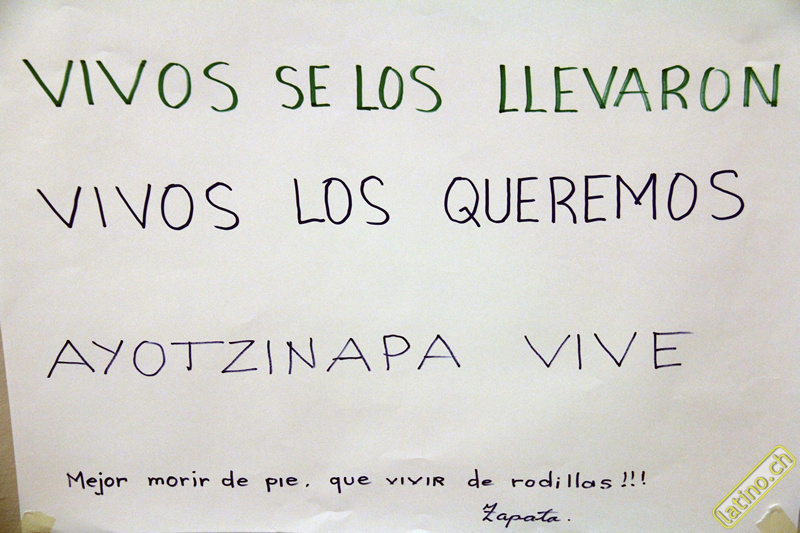 VIVOS SE LOS LLEVARON
VIVOS LOS QUEREMOS
AYOTZINAPA VIVE
Mejor morir de pie, que VIVIR de rodillas!!!
Zapata.
latino.ch